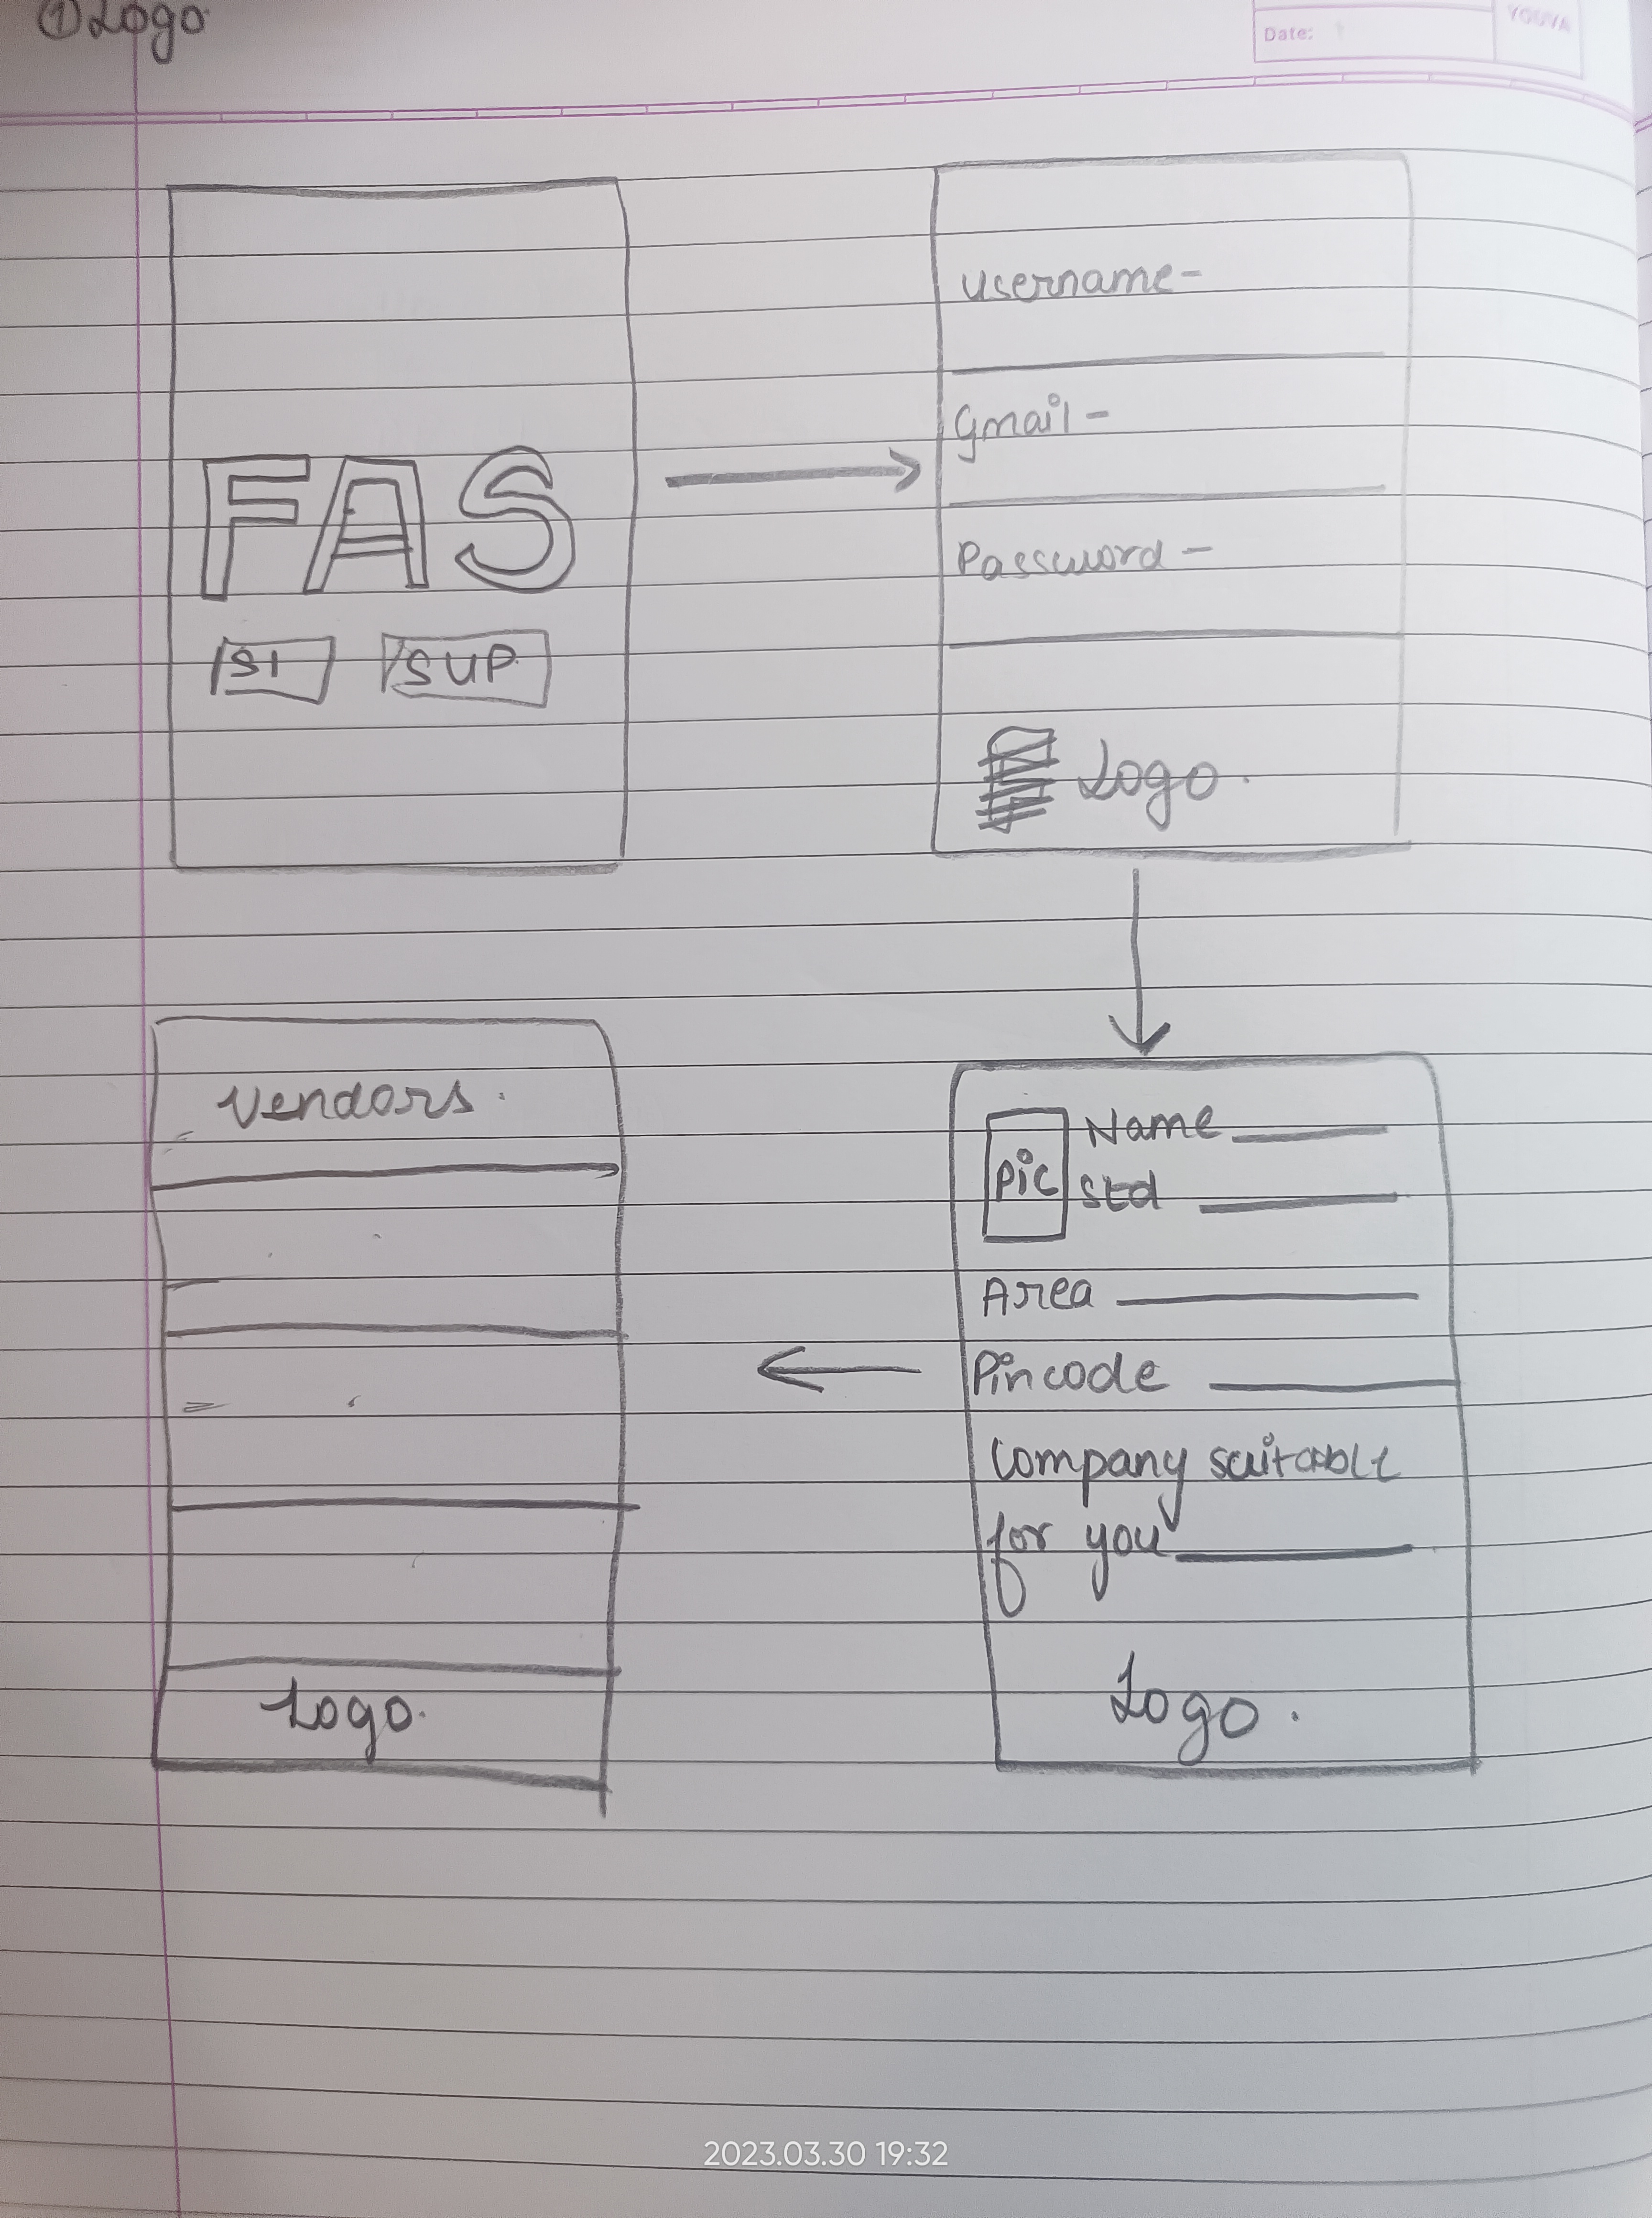 ① Logo
Date:
YOUVA
FAS
SI
SUP
Username-
Gmail-
Password-
Logo.
Pic
Name
Std
Area
Pincode
Company suitable
for you
Logo.
Vendors.
Logo.
2023.03.30 19:32